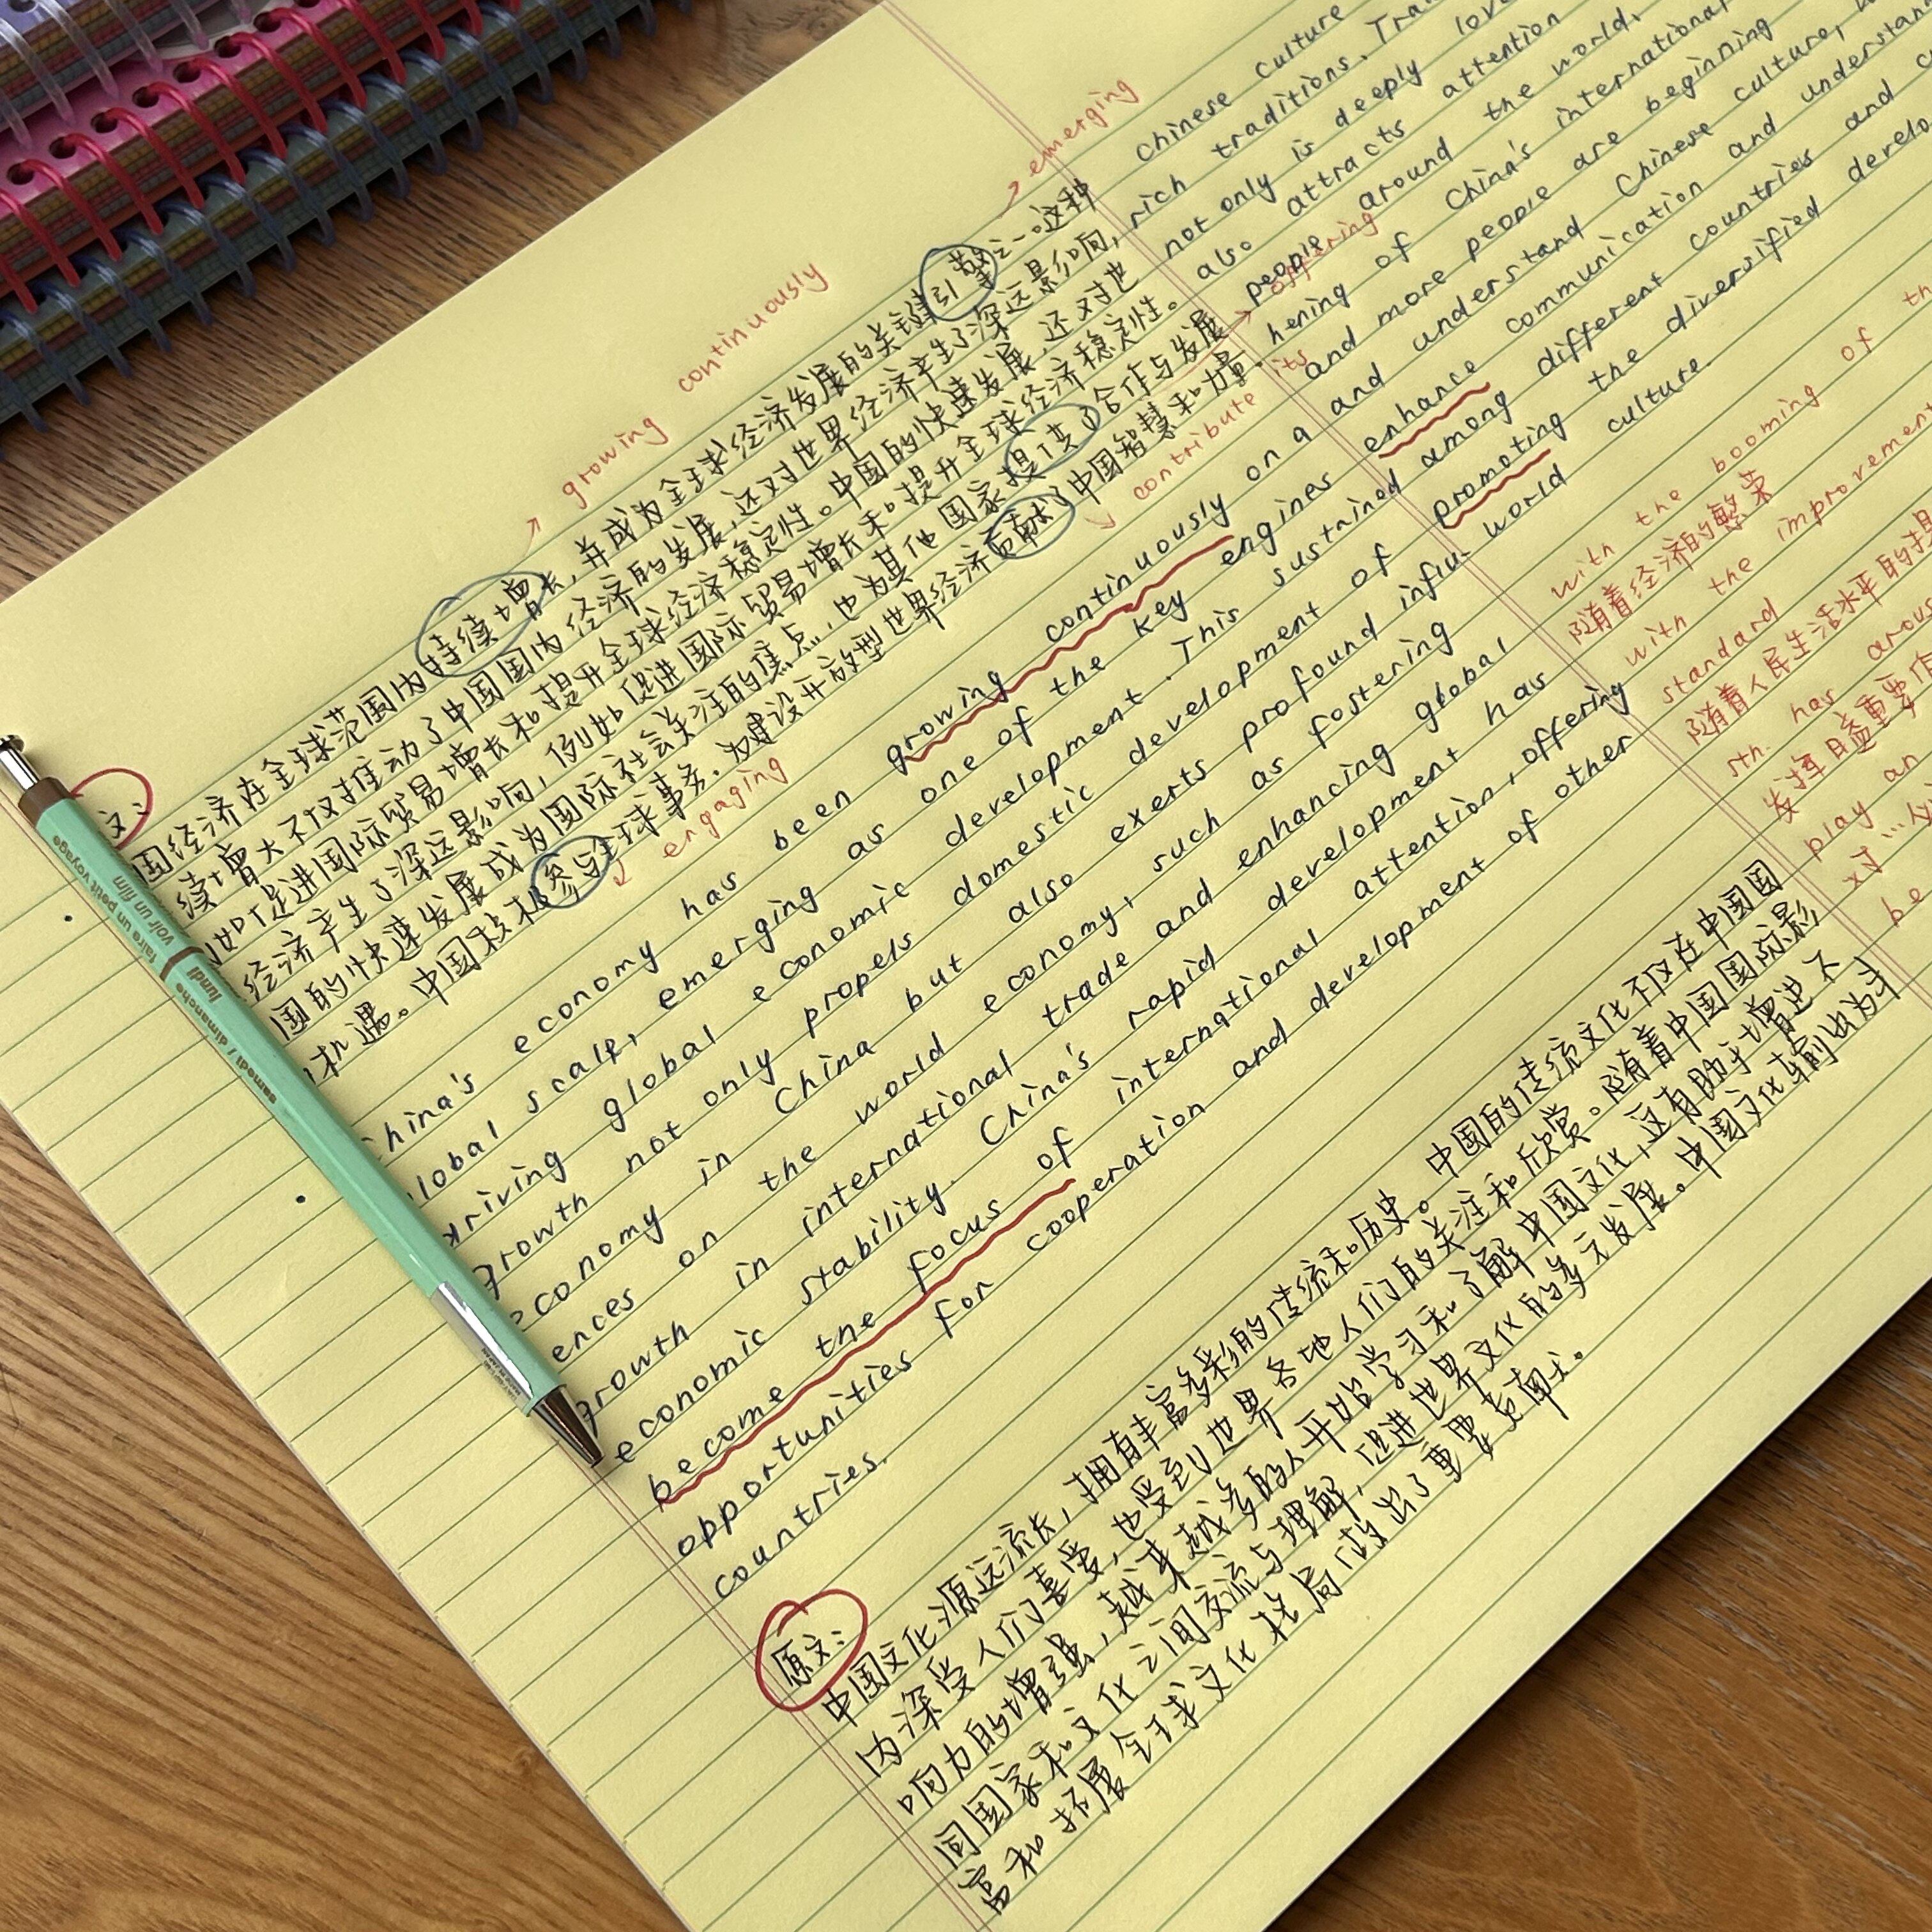 growing continuously
emerging
文:
国经济在全球范围内持续增长,并成为全球经济发展的关键引擎之一。这种
续增大不仅推动了中国国内经济的发展,还对世界经济产生了深远影响,
如促进国际贸易增长和提升全球经济稳定性。中国的快速发展,还对世
经济产生了深远影响,例如促进国际贸易增长和提升全球经济稳定性。
国的快速发展成为国际社会关注的焦点,也为其他国家提供了合作与发展
机遇。中国积极参与全球事务.为建设开放型世界经济贡献了中国智慧和力量.
offering
its
engaging
contribute
hina's economy has been growing continuously on a
lobal scale, emerging as one of the key engines
driving global economic development. This sustained
growth not only propels domestic development of
economy in China but also exerts profound influ-
ences on the world economy, such as fostering
growth in international trade and enhancing global
economic stability. China's rapid development has
become the focus of international attention, offering
opportunities for cooperation and development of other
countries.
原文:
中国文化源远流长,拥有丰富多彩的传统和历史。中国的传统文化不仅在中国国
内深受人们喜爱,也受到世界各地人们的关注和欣赏。随着中国国际影
响力的增强,越来越多的人开始学习和了解中国文化,这有助于增进不
同国家和文化之间交流与理解,促进世界文化的多元发展。中国文化输出为丰
富和拓展全球文化格局做出了重要贡献。
Chinese culture
rich traditions. Tra
not only is deeply love
also attracts attention
people around the world.
hening of China's international
and more people are beginning
and understand Chinese culture,
enhance communication and understan
among different countries and c
promoting the diversified develo
world culture.
with the booming of th
随着经济的繁荣
with the improvement
standard
随着人民生活水平的提
sth. has arous
发挥日益重要作
play an
对…
be
samedi / dimanche
lundi
faire un petit voyage
voir un film